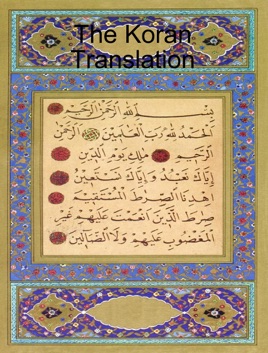 The Koran
Translation
بِسْمِ اللَّهِ الرَّحْمَٰنِ الرَّحِيمِ
الْحَمْدُ لِلَّهِ رَبِّ الْعَالَمِينَ الرَّحْمَٰنِ
الرَّحِيمِ مَلِكِ يَوْمِ الدِّينِ
إِيَّاكَ نَعْبُدُ وَإِيَّاكَ نَسْتَعِينُ
اهْدِنَا الصِّرَطَ الْمُسْتَقِيمَ
صِرَطَ الَّذِينَ أَنْعَمْتَ عَلَيْهِمْ غَيْرِ
الْمَغْضُوبِ عَلَيْهِمْ وَلَا الضَّالِّينَ